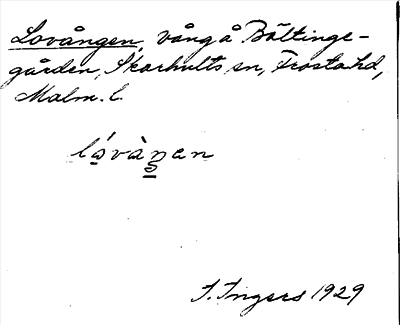 Lovången, vång å Bältinge-
gården, Skarhults sn, Frosta hd,
Malm. l.
I. Ingers 1929